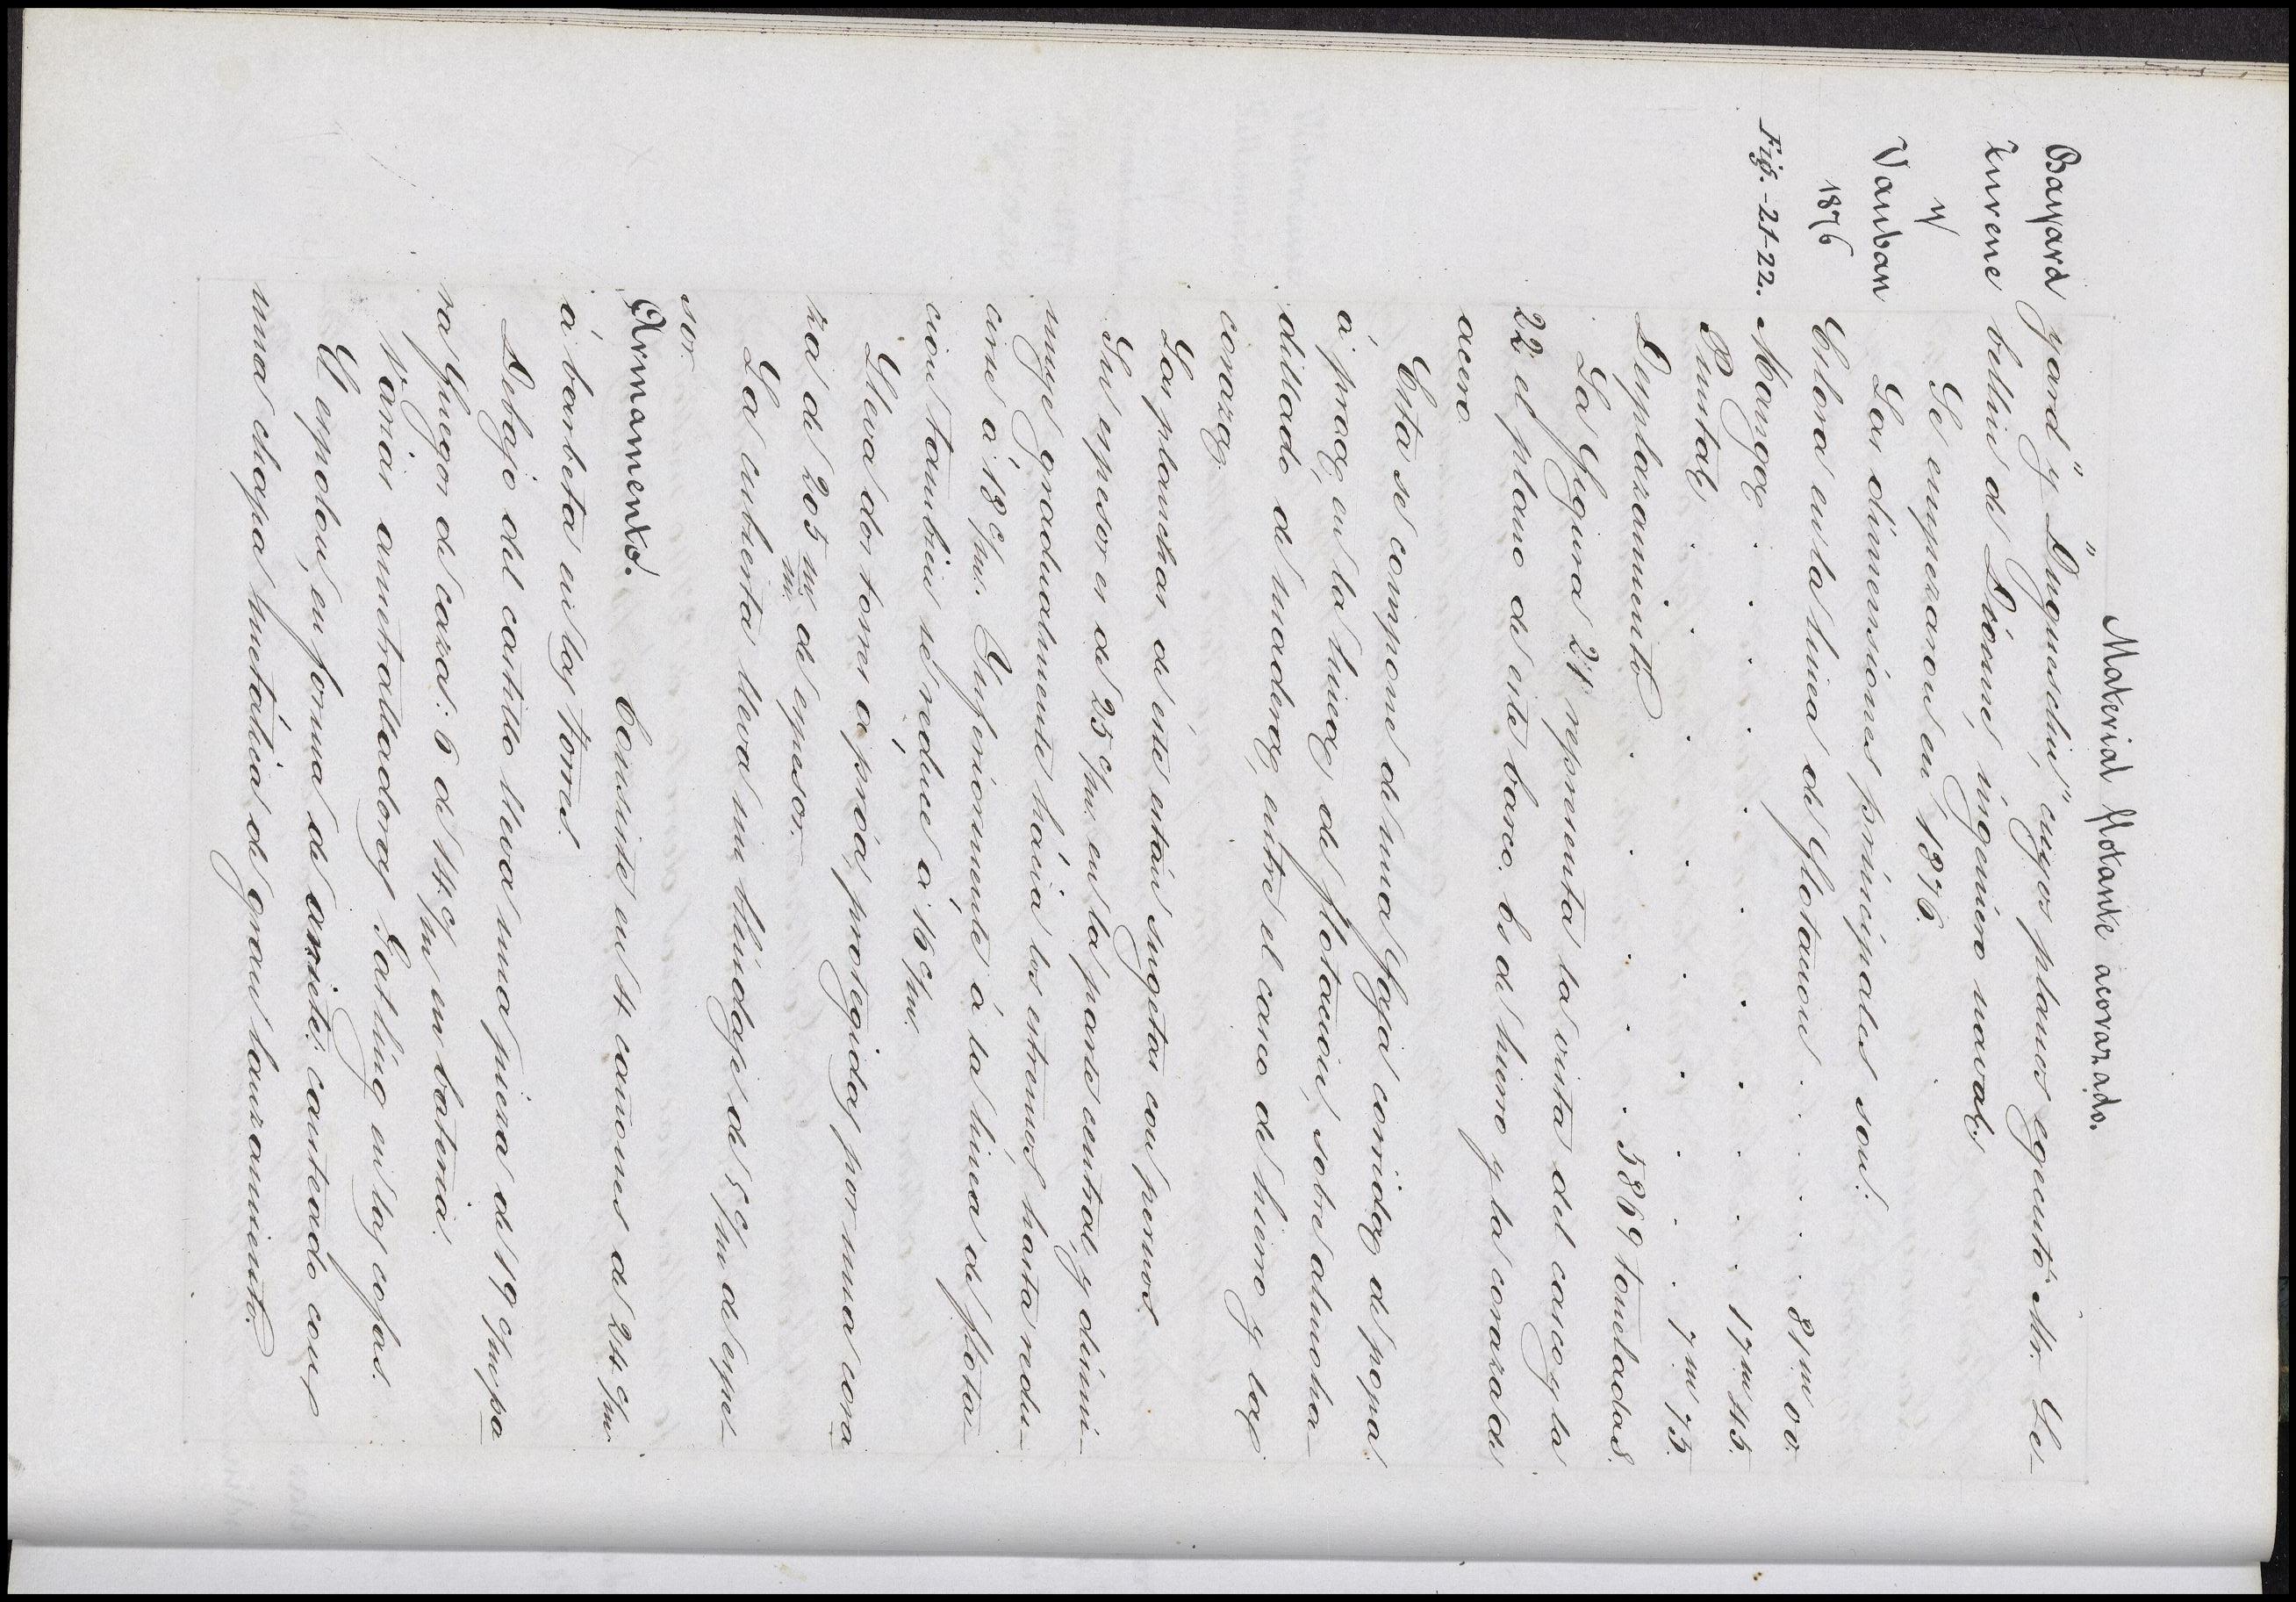 Material flotante acorazado.
Bayard
Turene
y
Vauban
1876
Fig.-21-22.
yard" y "Duguesclin" cuyos planos egecutó Mr. Sa-
bellin de Dionne, ingeniero naval,
Se empezaron en 1876.
Las dimensiones principales son:
Eslora en la linea de flotacion . . . . . 81 m 00.
Manga . . . . . . . . . . 17 m 45.
Puntal . . . . . . . . . . 7 m 75.
Desplazamiento . . . . . 5869 toneladas.
La figura 21 representa la vista del casco y la
22 el plano de este barco. Es de hierro y la coraza de
acero.
Esta se compone de una faja corrida, de popa
á proa, en la linea, de flotacion, sobre almoha-
dillado de madera, entre el casco de hierro y la
coraza.
Las planchas de éste están sugetas con pernos.
Su espesor es de 25 c/m. en la parte central, y dismi-
nuye gradualmente hácia los extremos, hasta redu-
cirse á 18 c/m. Inferiormente á la linea de flota-
cion tambien se reduce á 16 c/m.
Lleva dos torres á proa, protegidas por una cora
za de 205 m/m. de espesor.
La cubierta lleva un blindage de 5 c/m de espe-
sor.
Armamento. Consiste en 4 cañones de 24 c/m.
á barbeta en las torres.
Debajo del castillo lleva una pieza de 19 c/m pa-
ra fuegos de caza: 6 de 14 c/m en bateria.
Varias ametralladoras Gatling en las cofas.
El espolon, en forma de ariete; canteado con
una chapa metálica de gran lanzamiento.